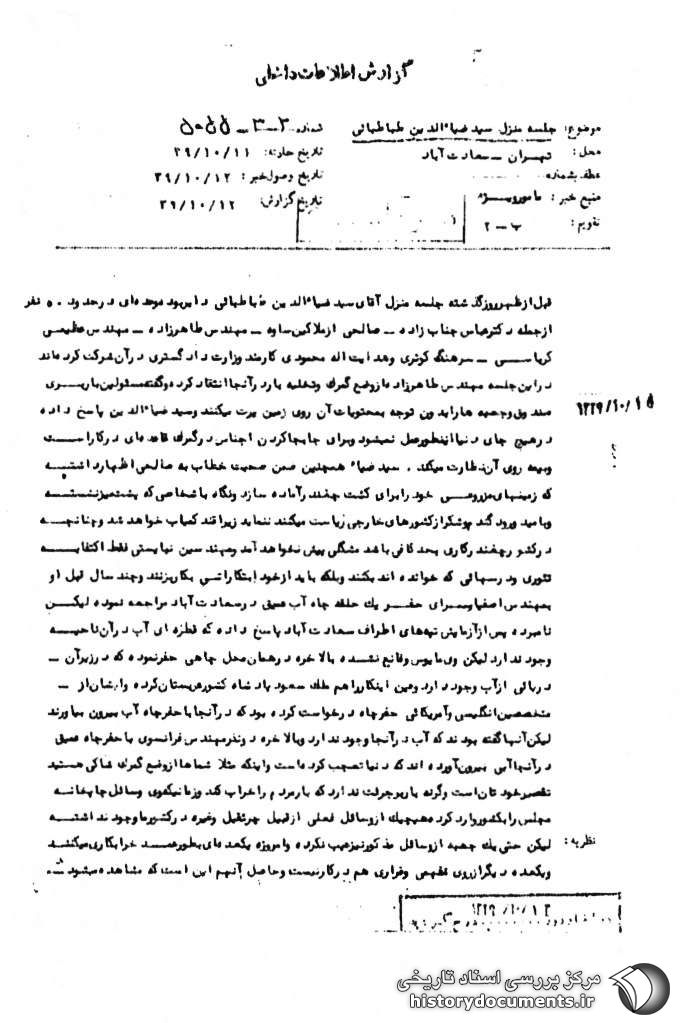 گزارش اطلاعات داخلی
موضوع: جلسه منزل سید ضیاءالدین طباطبائی
شماره
محل: تهران ــ سعادت آباد
تاریخ حادثه: ۳۹/۱۰/۱۱
عطف بشماره
تاریخ وصول خبر: ۳۹/۱۰/۱۲
منبع خبر: مامور ویژه
تاریخ گزارش: ۳۹/۱۰/۱۲
تقویم: ب ــ ۲
قبل از ظهر روز گذشته جلسه منزل آقای سید ضیاءالدین طباطبائی دایر بود وعده‌ای در حدود ۵۰ نفر
از جمله دکتر عباس جناب زاده ــ صالحی از ملاکین ساوه ــ مهندس طاهرزاده ــ مهندس عظیمی
کرباسی ــ سرهنگ کوثری وهدایت اله محمودی کارمند وزارت دادگستری در آن شرکت کرده‌اند
در این جلسه مهندس طاهرزاده از وضع گمرک وتخلیه بارد ر آنجا انتقاد کرده وگفته مسئولین باربری
صندوق وجعبه ها را بدون توجه بمحتویات آن روی زمین پرت میکنند وسید ضیاءالدین پاسخ داده
در هیچ جای دنیا اینطور عمل نمیشود وبرای جابجا کردن اجناس در گمرک قاعده‌ای در کار است
وبیمه روی آن نظارت میکند . سید ضیاء همچنین ضمن صحبت خطاب به صالحی اظهار داشته
که زمینهای مزروعی خود را برای کشت چغندر آماده سازد ونگاه باشخاصی که پشت میز نشسته
وبامید ورود قند وشکر از کشورهای خارجی ریاست میکنند ننماید زیرا قند کمیاب خواهد شد وچنانچه
در کشور چغندر کاری بحد کافی باشد مشگلی پیش نخواهد آمد ومهندسین نبایستی فقط اکتفا به
تئوری ودرسهائی که خوانده اند بکنند وبلکه باید از خود ابتکاراتی بکار بزنند وچند سال قبل او
بمهندس اصفیا برای حفر یک حلقه چاه آب عمیق در سعادت آباد مراجعه نموده لیکن
نامبرده پس از آزمایش تپه‌های اطراف سعادت آباد پاسخ داده که قطره ای آب در آن ناحیه
وجود ندارد لیکن وی مایوس وقانع نشده بالاخره در همان محل چاهی حفر نموده که در زیر آن ــ
دریائی از آب وجود دارد وعین اینکار را هم ملک سعود پادشاه کشور عربستان کرده وایشان از ــ
متخصصین انگلیسی وآمریکائی حفر چاه درخواست کرده بود که در آنجا با حفر چاه آب بیرون بیاورند
لیکن آنها گفته بودند که آب در آنجا وجود ندارد وبالاخره دو نفر مهندس فرانسوی با حفر چاه عمیق
در آنجا آبی بیرون آورده اند که دنیا تعجب کرده است واینکه مثلا شماها از وضع گمرک شاکی هستید
تقصیر خودتان است وگرنه باربر جرئت ندارد که بار مردم را خراب کند وزمانیکه وی وسائل چاپخانه
مجلس را بکشور وارد کرده هیچیک از وسائل فعلی از قبیل جرثقیل وغیره در کشور ما وجود نداشته
لیکن حتی یک جعبه از وسائل مذکور نیز عیب نکرده وامروزه یکعده‌ای بطور عمد خرابکاری میکنند
ویکعده دیگر از روی وقراری هم در کار نیست وحاصل آنهم این است که مشاهده میشود .
۱۳۳۹/۱۰/۱۵
نظریه:
مرکز بررسی اسناد تاریخی
historydocuments.ir